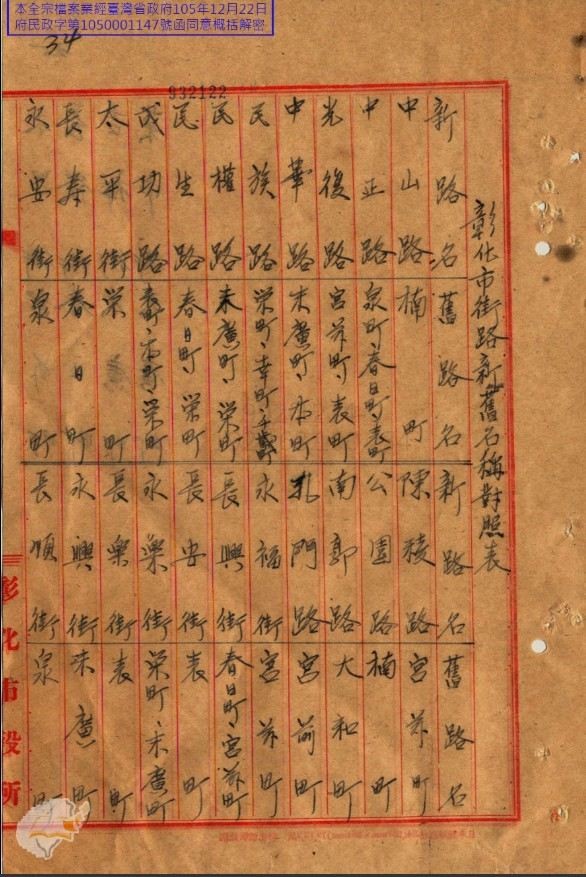 本全宗檔案業經臺灣省政府105年12月22日
府民政字第1050001147號函同意概括解密
34
932122
彰化市街路新舊名稱對照表
新路名 舊路名 新路名 舊路名
中山路 楠町 陳稜路 宮前町
中正路 泉町、春日町、表町 公園路 楠町
光後路 宮前町、表町 南郭路 大和町
中華路 末廣町、本町 孔門路 宮前町
民族路 栄町、幸町、 永福街 宮前町
民權路 末廣町、栄町 長興街 春日町、宮前町
民生路 春日町、栄町 長安街 表町
成功路 本町、栄町 永樂街 栄町、末廣町
太平街 栄町 長樂街 表町
長壽街 春日町 永興街 末廣町
永安街 泉町 長順街 泉町
彰化市役所